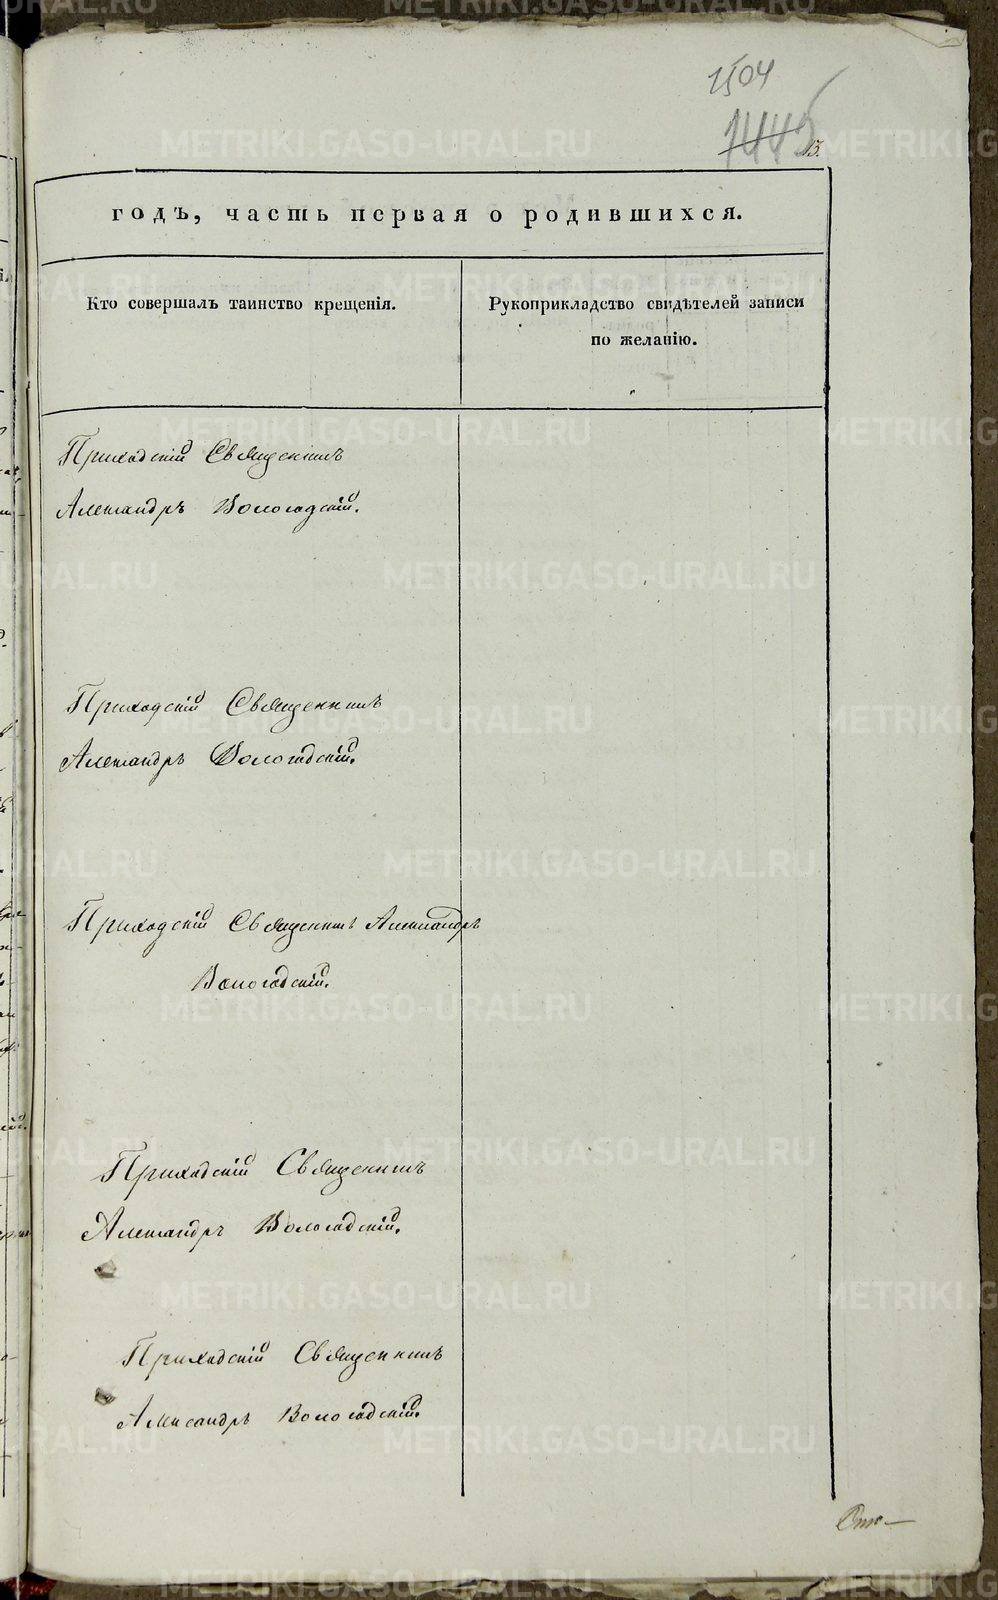 1504
1445
13.
годъ, часть первая о родившихся.
Кто совершалъ таинство крещенія.
Рукоприкладство свидѣтелей записи
по желанію.
Приходскій Священникъ
Александръ Вологодскій.
Приходскій Священникъ
Александръ Вологодскій.
Приходскій Священникъ Александръ
Вологодскій.
Приходскій Священникъ
Александръ Вологодскій.
Приходскій Священникъ
Александръ Вологодскій.
METRIKI.GASO-URAL.RU